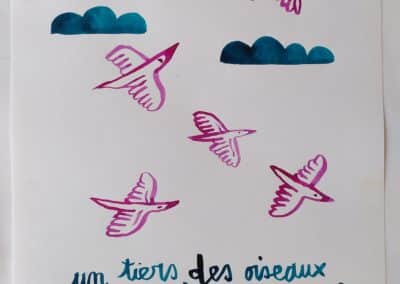 un tiers des oiseaux